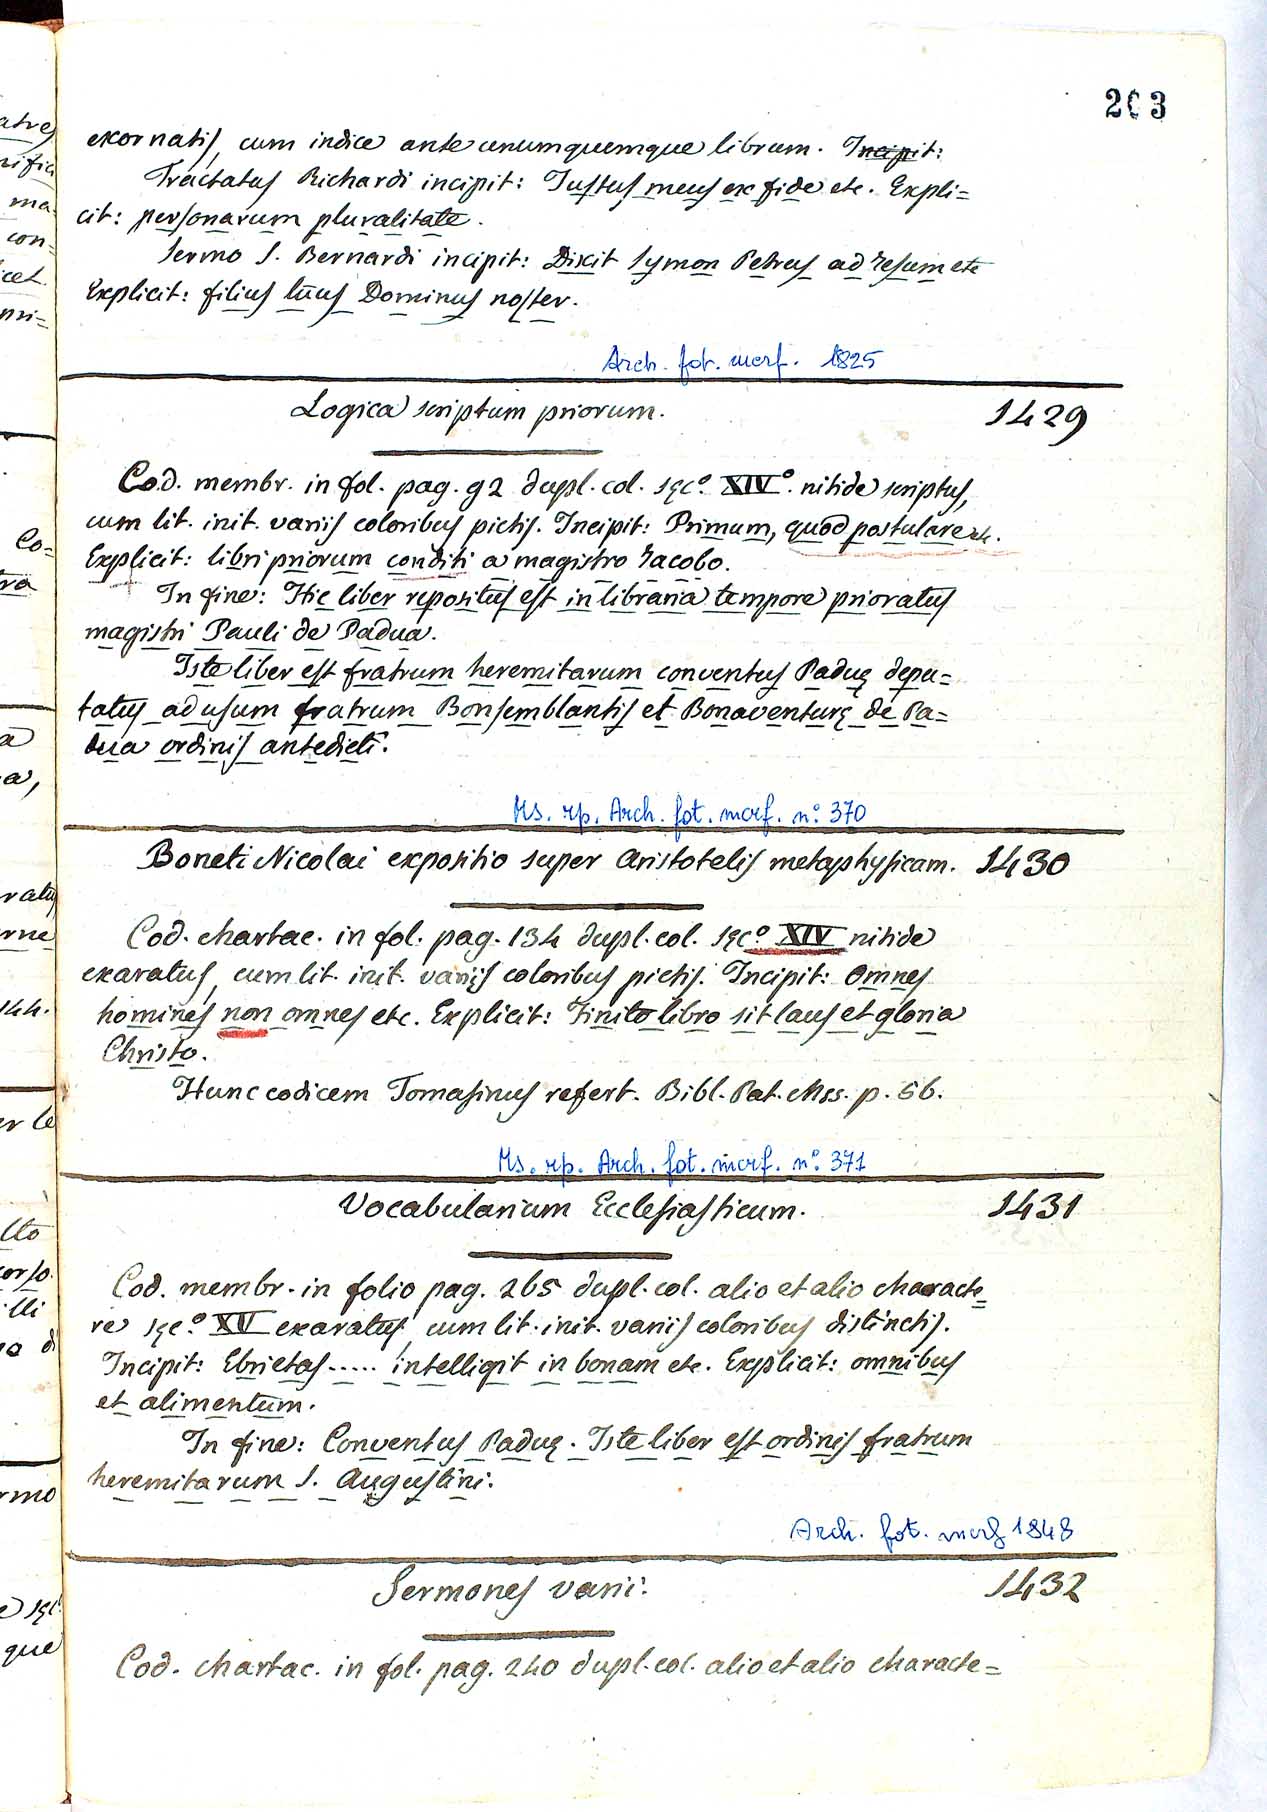 203
exornatis, cum indice ante unumquemque librum. Incipit:
Tractatus Richardi incipit: Justus meus ex fide etc. Expli=
cit: personarum pluralitate.
Sermo S. Bernardi incipit: Dixit Symon Petrus ad Jesum etc
Explicit: filius tuus Dominus noster.
Arch. fot. morf. 1825
Logica scriptum priorum. 1429
Cod. membr. in fol. pag. 92 dupl. col. sęc.º XIVº. nitide scriptus,
cum lit. init. variis coloribus pictis. Incipit: Primum, quod postulare etc.
Explicit: libri priorum conditi a magistro Jacobo.
In fine: Hic liber repositus est in libraria tempore prioratus
magistri Pauli de Padua.
Iste liber est fratrum heremitarum conventus Paduę depu=
tatus ad usum fratrum Bonsemblantis et Bonaventurę de Pa=
dua ordinis antedicti.
Ms. rip. Arch. fot. morf. n.º 370
Boneti Nicolai expositio super Aristotelis metaphysicam. 1430
Cod. chartac. in fol. pag. 134 dupl. col. sęc.º XIV nitide
exaratus, cum lit. init. variis coloribus pictis. Incipit: Omnes
homines non omnes etc. Explicit: Finito libro sit laus et gloria
Christo.
Hunc codicem Tomasinus refert. Bibl. Pat. Mss. p. 56.
Ms. rip. Arch. fot. morf. nº. 371
Vocabularium Ecclesiasticum. 1431
Cod. membr. in folio pag. 265 dupl. col. alio et alio characte=
re sęc.º XV exaratus, cum lit. init. variis coloribus distinctis.
Incipit: Ebrietas ..... intelligit in bonam etc. Explicit: omnibus
et alimentum.
In fine: Conventus Paduę. Iste liber est ordinis fratrum
heremitarum S. Augustini.
Arch. fot. morf 1848
Sermones varii. 1432
Cod. chartac. in fol. pag. 240 dupl. col. alio et alio characte=